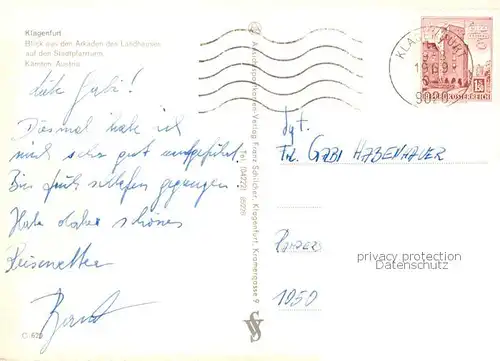 Klagenfurt
Blick aus den Arkaden des Landhauses
auf den Stadtpfarrturm
Kärnten, Austria
Gabi!
Diesmal habe ich
mich sehr gut aufgeführt.
Bin früh schlafen gegangen!
Habe dabei schönes
Reisewetter
C. 620
Ansichtspostkarten-Verlag Franz Schilcher, Klagenfurt, Kramergasse 9
Tel. (04222) 85028
KLAGENFURT
1969
9020
REPUBLIK ÖSTERREICH
Frl. GABI HABENHAUER
1050
privacy protection
Datenschutz